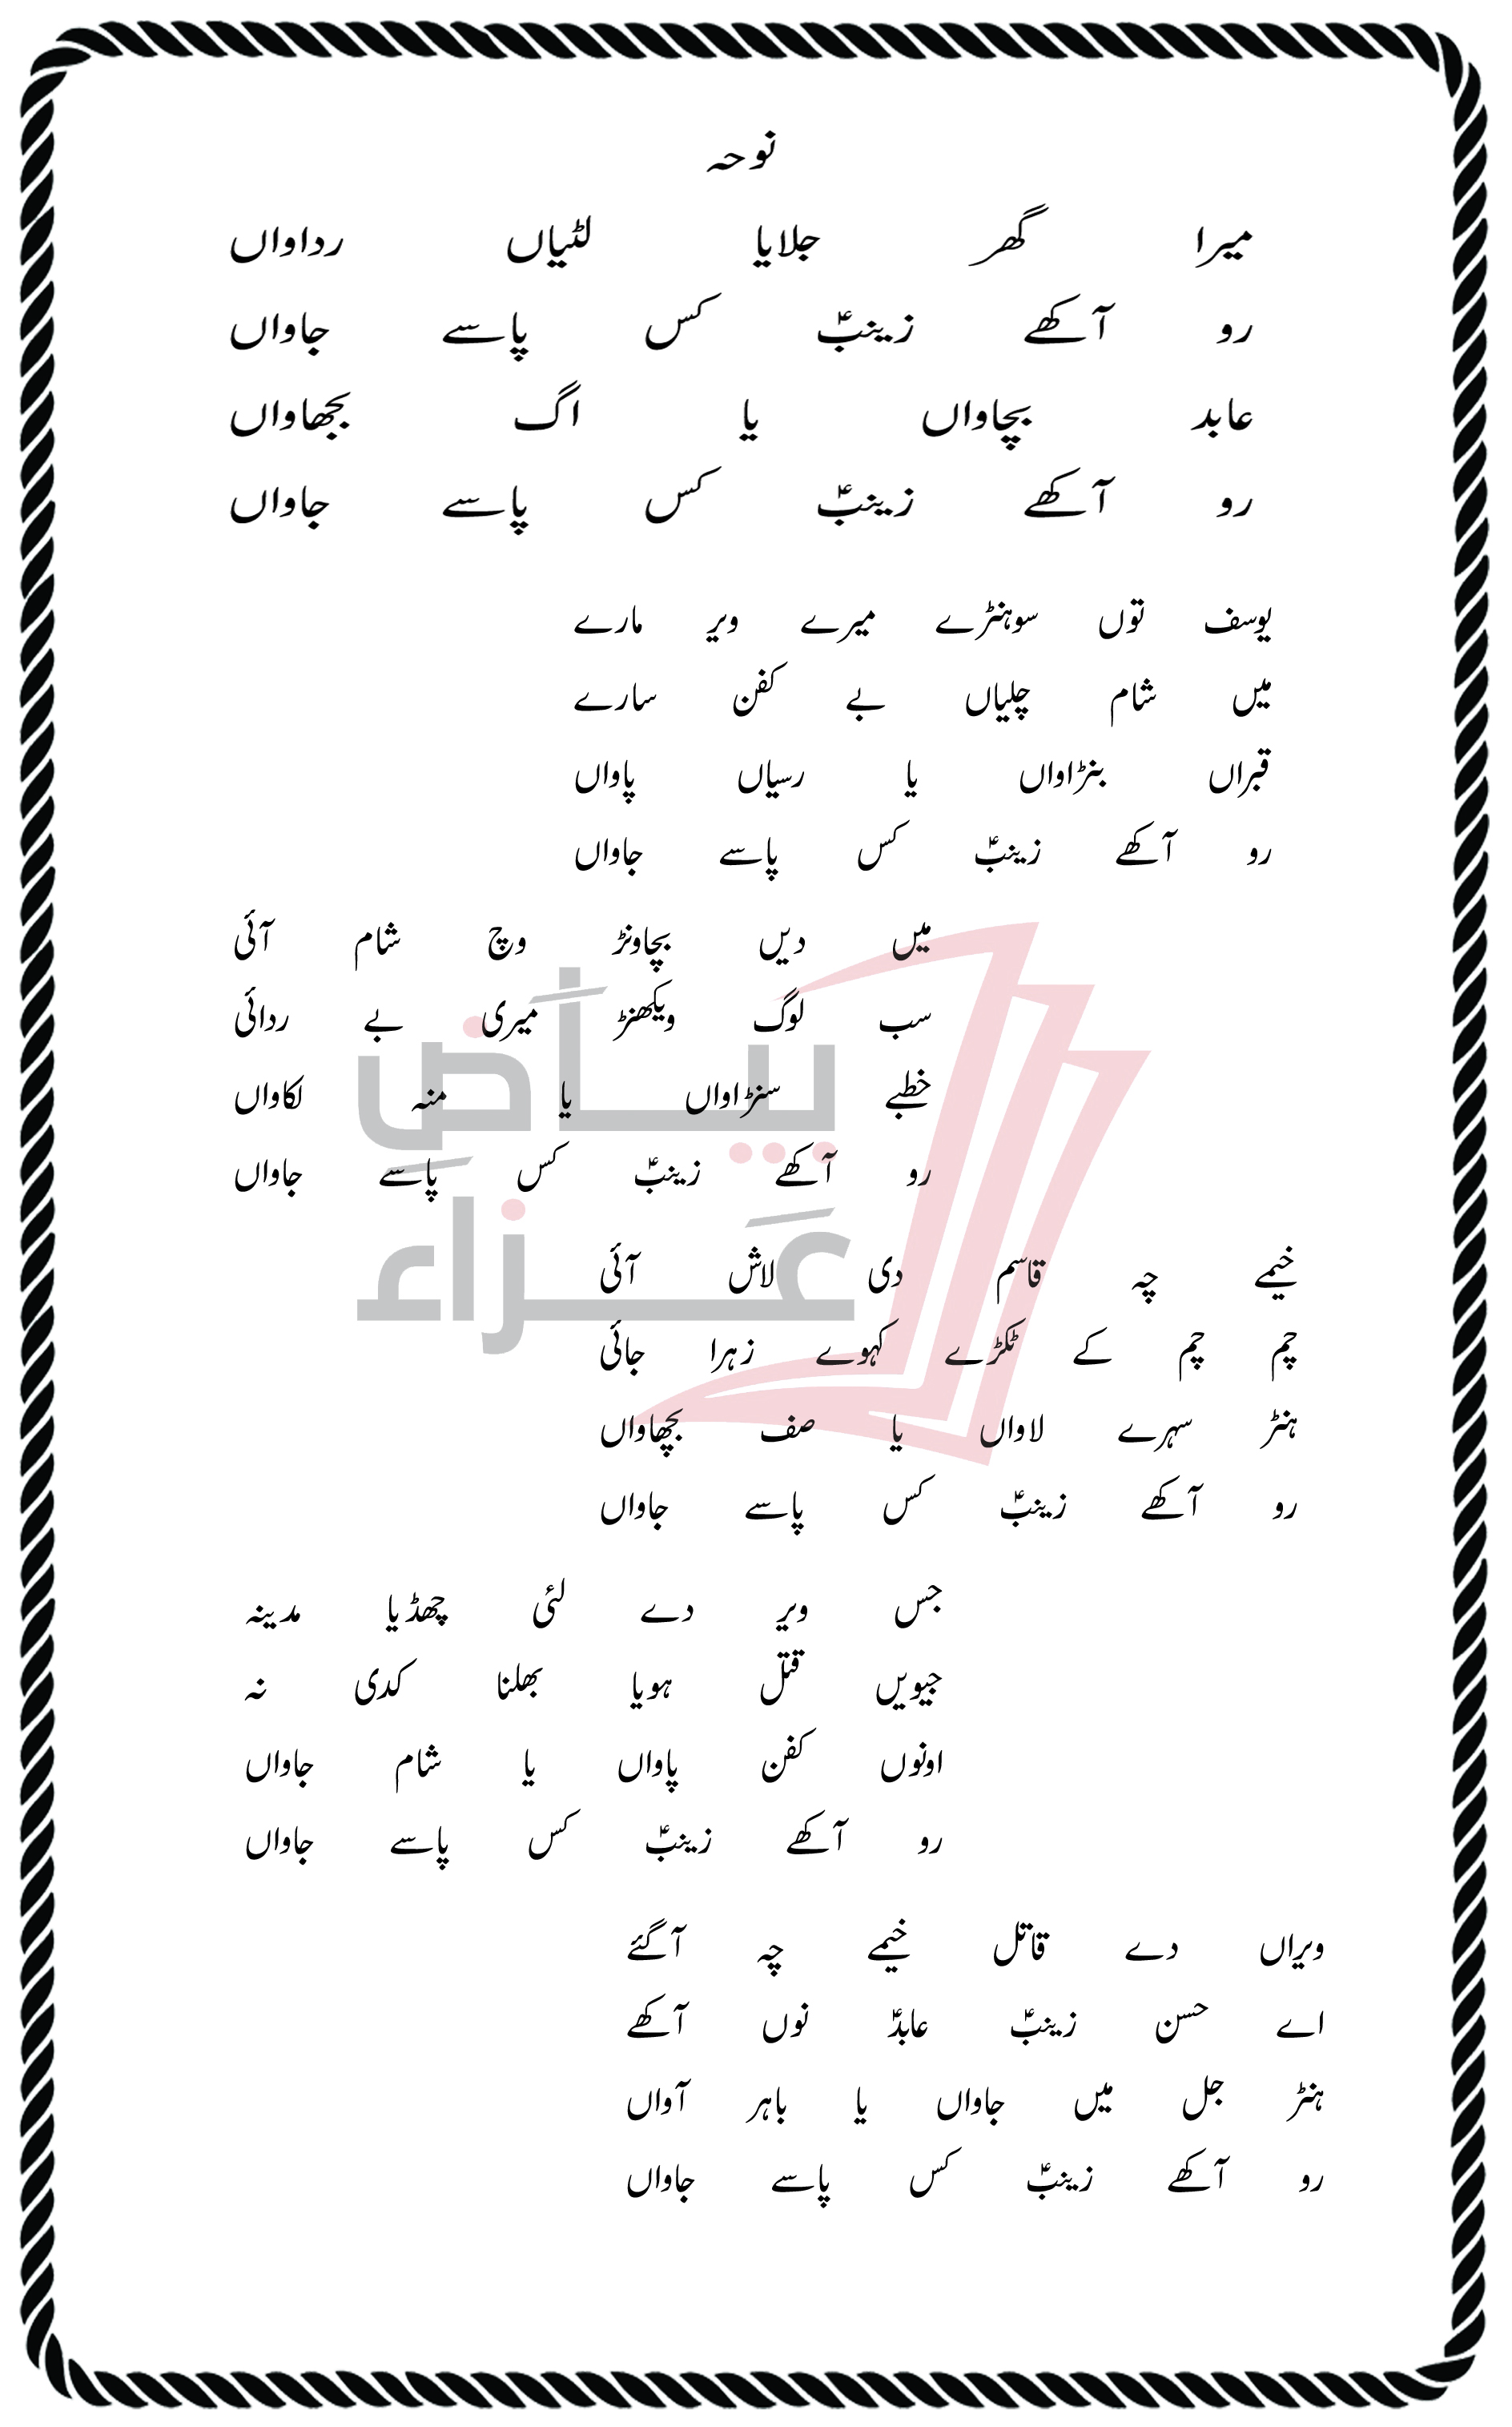 نوحہ
میرا گھر جلایا لٹیاں رداواں
رو آکھے زینبؑ کس پاسے جاواں
عابد بچاواں یا اگ بجھاواں
رو آکھے زینبؑ کس پاسے جاواں
یوسف توں سوہنڑے میرے ویر مارے
میں شام چلیاں بے کفن سارے
قبراں بنڑاواں یا رسیاں پاواں
رو آکھے زینبؑ کس پاسے جاواں
میں دیں بچاونڑ وچ شام آئی
سب لوگ ویکھنڑ میری بے ردائی
خطبے سنڑاواں یا منہ لکاواں
رو آکھے زینبؑ کس پاسے جاواں
بیاضِ
عَزاء
خیمے چہ قاسم دی لاش آئی
چم چم کے ٹکڑے کہوے زہرا جائی
ہنڑ سہرے لاواں یا صف بچھاواں
رو آکھے زینبؑ کس پاسے جاواں
جس ویر دے لئی چھڈیا مدینہ
جیویں قتل ہویا بھلنا کدی نہ
اونوں کفن پاواں یا شام جاواں
رو آکھے زینبؑ کس پاسے جاواں
ویراں دے قاتل خیمے چہ آگئے
اے حسن زینبؑ عابدؑ نوں آکھے
ہنڑ جل میں جاواں یا باہر آواں
رو آکھے زینبؑ کس پاسے جاواں